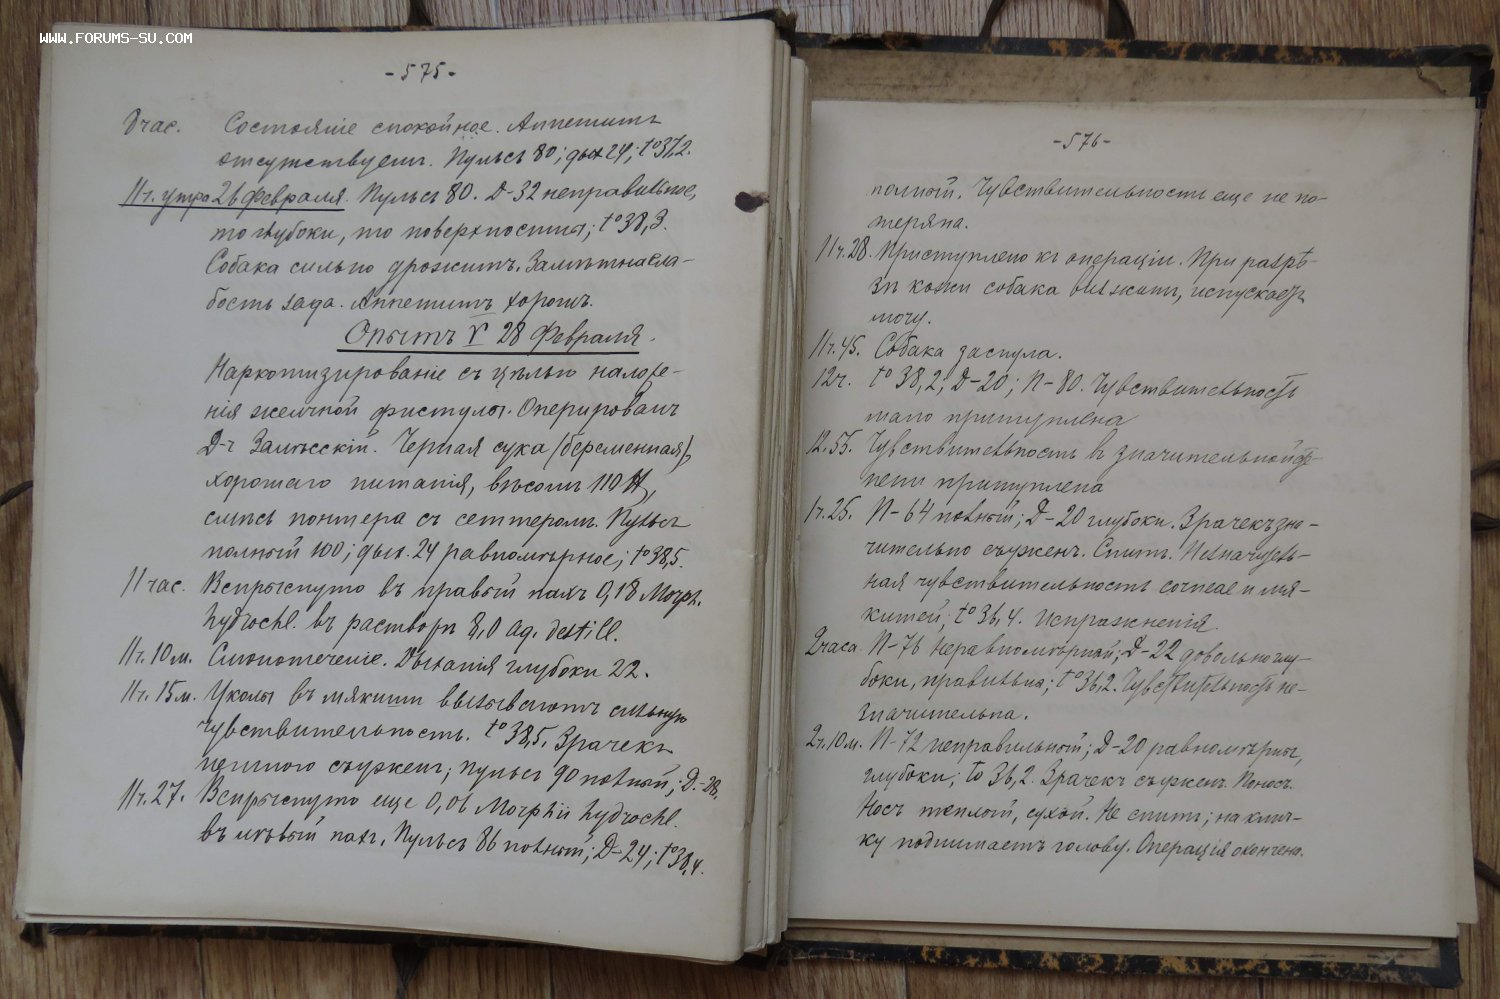 WWW.FORUMS-SU.COM
-575-
8 час. Состоянiе спокойное. Аппетитъ
отсутствуетъ. Пульсъ 80; дых 24; t° 37,2.
11 ч. утра 26 Февраля. Пульсъ 80. Д-32 неправильное,
то глубоки, то поверхностны; t° 38,3.
Собака сильно дрожитъ. Замѣтна сла-
бость зада. Аппетитъ хорошъ.
Опытъ V 28 Февраля.
Наркотизированiе съ цѣлью наложе-
нiя желчной фистулы. Оперировалъ
Д-ъ Залѣсскiй. Черная сука (беременная),
хорошаго питанiя, вѣсомъ 110 ℔,
смѣсь понтера съ сеттеромъ. Пульсъ
полный 100; дых. 24 равномѣрное; t° 38,5.
11 час. Вспрыснуто въ правый пахъ 0,18 Morph.
hydrochl. въ растворѣ 8,0 aq. destill.
11 ч. 10 м. Слюнотеченiе. Дыханiя глубоки 22.
11 ч. 15 м. Уколы въ мякиши вызываютъ сильную
чувствительность. t° 38,5. Зрачекъ
немного съуженъ; пульсъ 90 полный; Д.-28.
11 ч. 27. Вспрыснуто еще 0,06 Morphii hydrochl.
въ лѣвый пахъ. Пульсъ 86 полный; Д-24; t° 38,4.
-576-
полный. Чувствительность еще не по-
теряна.
11 ч. 28. Приступлено къ операцiи. При разрѣ-
зѣ кожи собака визжитъ, испускаетъ
мочу.
11 ч. 45. Собака заснула.
12 ч. t° 38,2; Д-20; П-80. Чувствительность
мало притуплена
12.55. Чувствительность въ значительной сте-
пени притуплена
1 ч. 25. П-64 полный; Д-20 глубоки. Зрачекъ зна-
чительно съуженъ. Спитъ. Незначитель-
ная чувствительность corneae и мя-
кишей; t° 36,4. Испражненiя.
2 часа. П-76 неравномѣрный; Д-22 довольно глу-
боки, правильны; t° 36,2. Чувствительность не-
значительна.
2 ч. 10 м. П-72 неправильный; Д-20 равномѣрны,
глубоки; t° 36,2. Зрачекъ съуженъ. Поносъ.
Носъ теплый, сухой. Не спитъ; на клич-
ку поднимаетъ голову. Операцiя окончена.